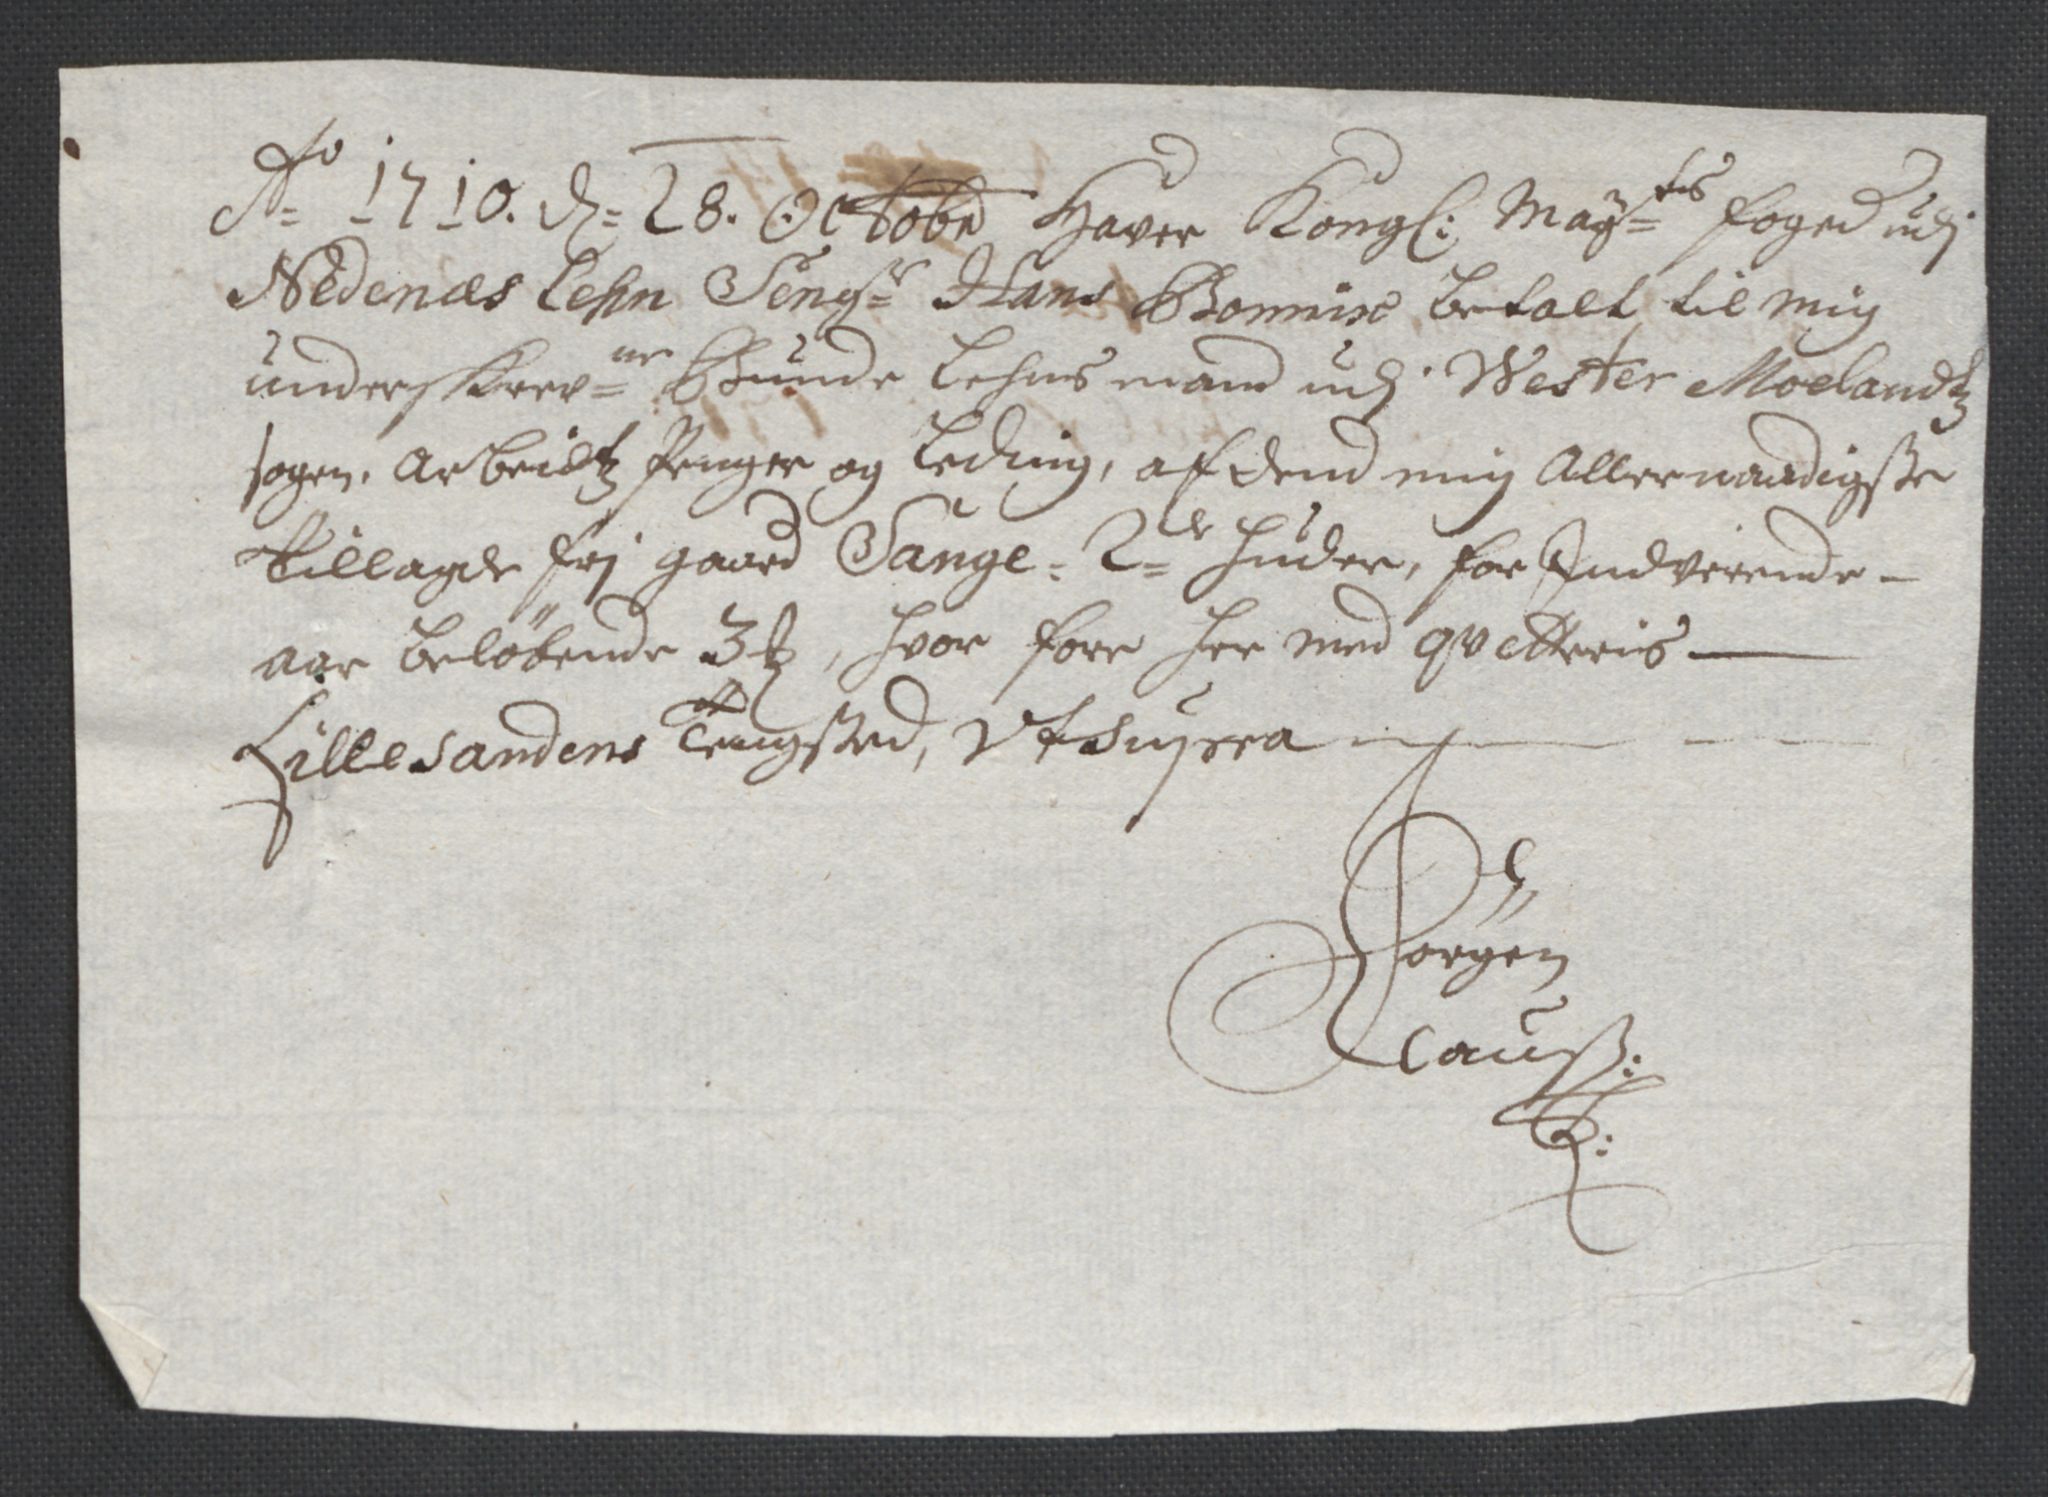 Ao 1710. d. 28. Octobr Haver Kongl: Mayts foged udj
Nedenæs Lehn Sengr Hans Bomix betalt til mig
underskrevne Bunde Lehnsmand udj Wester Moelandtz
sogen. Arbeidtz Penger og Leding, af dend mig Allernaadigste
tillagde frj gaard Tange 2de huder, for Indverende
aar beløbende 3 , hvor fore her med qvetteris
Lille Sandens Tingsted, Vt Supra
Jørgen
Clauß: